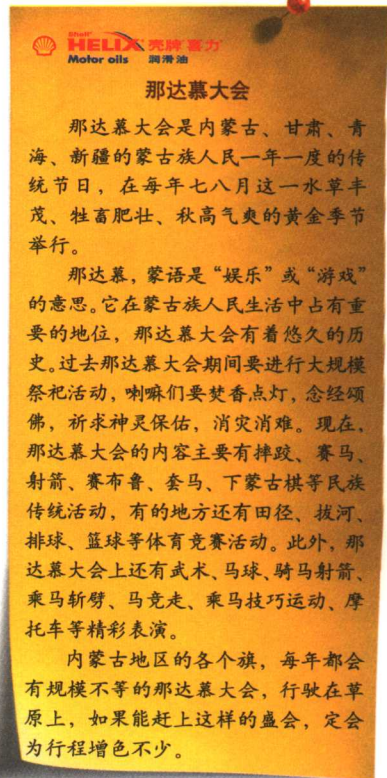 Shell
HELIX 壳牌喜力
Motor oils 润滑油
那达慕大会
那达慕大会是内蒙古、甘肃、青
海、新疆的蒙古族人民一年一度的传
统节日，在每年七八月这一水草丰
茂、牲畜肥壮、秋高气爽的黄金季节
举行。
那达慕，蒙语是“娱乐”或“游戏”
的意思。它在蒙古族人民生活中占有重
要的地位，那达慕大会有着悠久的历
史。过去那达慕大会期间要进行大规模
祭祀活动，喇嘛们要焚香点灯，念经颂
佛，祈求神灵保佑，消灾消难。现在，
那达慕大会的内容主要有摔跤、赛马、
射箭、赛布鲁、套马、下蒙古棋等民族
传统活动，有的地方还有田径、拔河、
排球、篮球等体育竞赛活动。此外，那
达慕大会上还有武术、马球、骑马射箭、
乘马斩劈、马竞走、乘马技巧运动、摩
托车等精彩表演。
内蒙古地区的各个旗，每年都会
有规模不等的那达慕大会，行驶在草
原上，如果能赶上这样的盛会，定会
为行程增色不少。